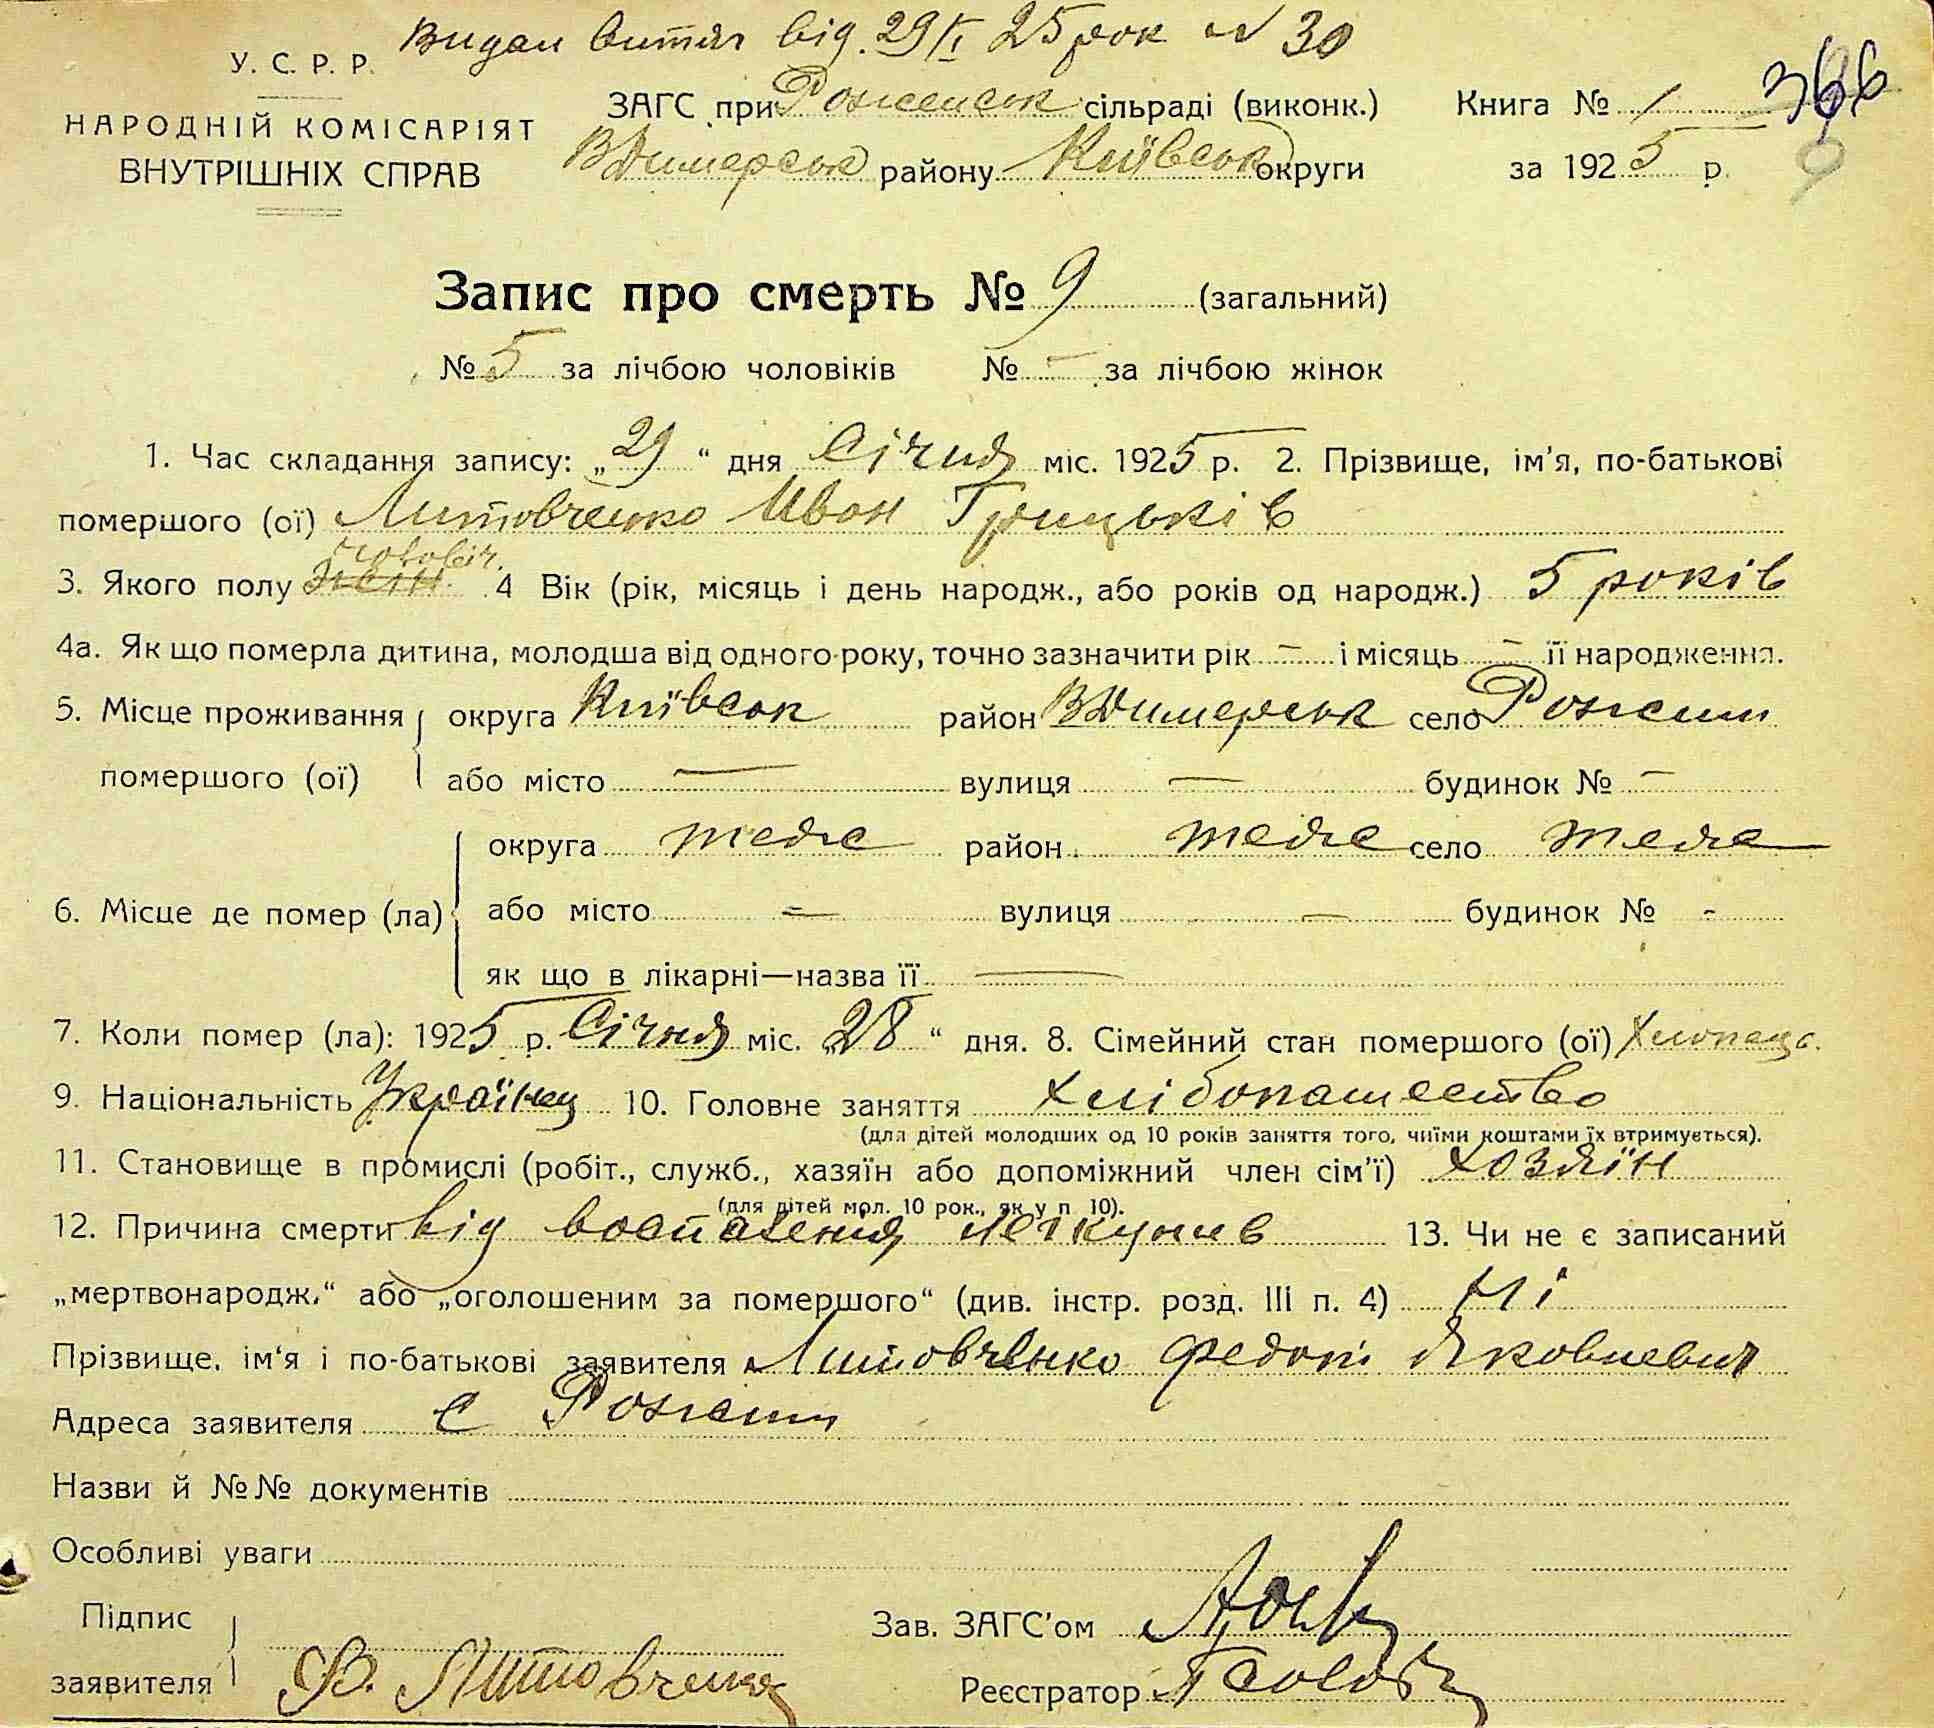 Видан витяг від. 29/I 25 рок N 30
У. С. Р. Р.
НАРОДНІЙ КОМІСАРІЯТ
ВНУТРІШНІХ СПРАВ
ЗАГС при Роженськ сільраді (виконк.)
ВДимерськ району Київськ округи
Книга № 1 366
за 1925 р. 9
Запис про смерть № 9 (загальний)
№ 5 за лічбою чоловіків № - за лічбою жінок
1. Час складання запису: „29“ дня Січня міс. 1925 р. 2. Прізвище, ім'я, по-батькові
помершого (ої) Литовченко Иван Грицьків
чоловіч.
3. Якого полу жен. 4 Вік (рік, місяць і день народж., або років од народж.) 5 років
4а. Як що померла дитина, молодша від одного року, точно зазначити рік - і місяць - її народження.
5. Місце проживання помершого (ої) округа Київськ район ВДимерськ село Рожни
або місто — вулиця — будинок № -
6. Місце де помер (ла) округа теже район теже село теже
або місто - вулиця - будинок № -
як що в лікарні—назва її —
7. Коли помер (ла): 1925 р. Січня міс. „28“ дня. 8. Сімейний стан помершого (ої) Хлопець.
9. Національність Українец 10. Головне заняття Хлібопашество
(для дітей молодших од 10 років заняття того, чиїми коштами їх втримується).
11. Становище в промислі (робіт., служб., хазяїн або допоміжний член сім'ї) хозяїн
(для дітей мол. 10 рок., як у п 10).
12. Причина смерти від воспаления легкунив 13. Чи не є записаний
„мертвонародж.“ або „оголошеним за помершого“ (див. інстр. розд. III п. 4) Ні
Прізвище, ім'я і по-батькові заявителя Литовченко Федот Яковлевич
Адреса заявителя с Рожни
Назви й №№ документів
Особливі уваги
Підпис заявителя Ф. Литовченко
Зав. ЗАГС'ом
Реєстратор